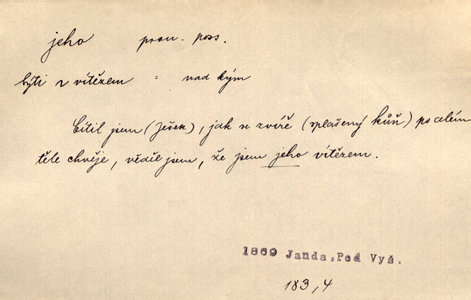 jeho pron. poss.
býti vítězem = nad kým
Cítil jsem (Ješek), jak se zvíře (splašený kůň) po celém
těle chvěje, věděl jsem, že jsem jeho vítězem.
1869 Janda, Pod Vyš.
183,4